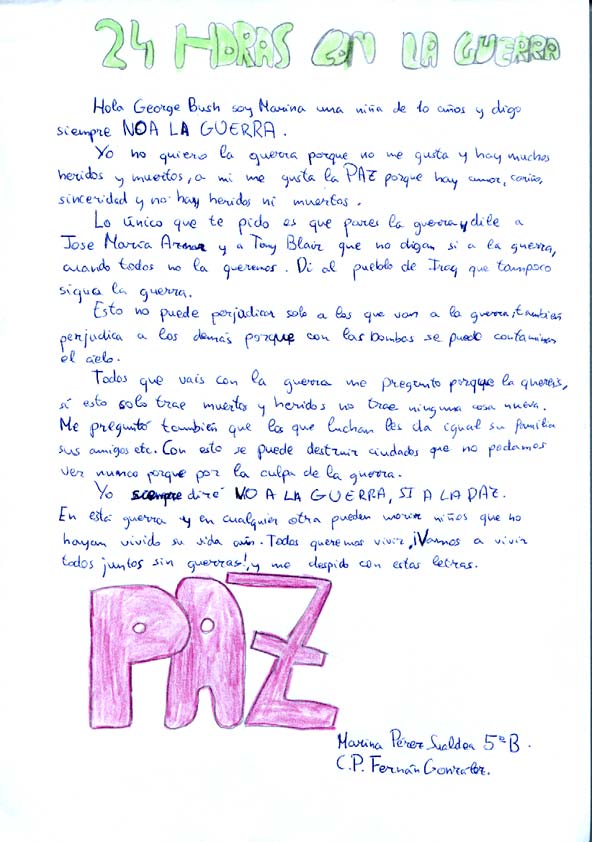 24 HORAS CON LA GUERRA
Hola George Bush soy Marina una niña de 10 años y digo
siempre NO A LA GUERRA.
Yo no quiero la guerra porque no me gusta y hay muchos
heridos y muertos, a mi me gusta la PAZ porque hay amor, cariño,
sinceridad y no hay heridos ni muertos.
Lo único que te pido es que pares la guerra y dile a
Jose Maria Aznar y a Tony Blair que no digan si a la guerra,
cuando todos no la queremos. Di al pueblo de Iraq que tampoco
sigua la guerra.
Esto no puede perjudicar solo a los que van a la guerra, tambien
perjudica a los demás porque con las bombas se puede contaminar
el cielo.
Todos que vais con la guerra me pregunto porque la quereis,
si esto solo trae muertos y heridos no trae ninguna cosa nueva.
Me pregunto también que los que luchan les da igual su familia
sus amigos etc. Con esto se puede destruir ciudades que no podamos
ver nunca porque por la culpa de la guerra.
Yo siempre diré NO A LA GUERRA, SI A LA PAZ.
En esta guerra y en cualquier otra pueden morir niños que no
hayan vivido su vida aún. Todos queremos vivir, ¡Vamos a vivir
todos juntos sin guerras!, y me despido con estas letras.
PAZ
Marina Pérez 5º B.
C.P. Fernán González.